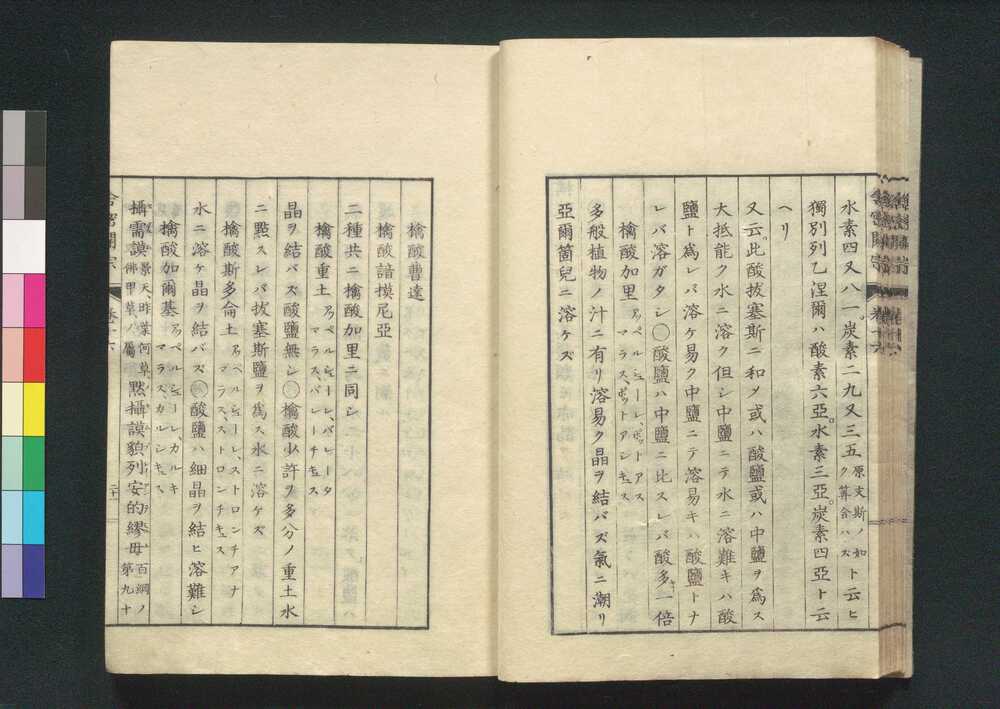 水素四又八一。炭素二九又三五原文斯ノ如ク算合ハズト云ヒ
獨別列乙涅爾ハ酸素六亞。水素三亞。炭素四亞ト云
ヘリ
又云。此酸拔塞斯ニ和メ或ハ酸鹽或ハ中鹽ヲ爲ス
大抵能ク水ニ溶ク但シ中鹽ニテ水ニ溶難キハ酸
鹽ト爲レバ溶ケ易ク中鹽ニテ溶易キハ酸鹽トナ
レバ溶ガタシ○酸鹽ハ中鹽ニ比スレバ酸多キ一倍
檎酸加里 アペルシューレ、ポットアス マラス、ポットアシキュス
多般植物ノ汁ニ有リ溶易ク晶ヲ結バズ氣ニ潮リ
亞爾箇兒ニ溶ケズ
檎酸曹達
檎酸諳摸尼亞
二種共ニ檎酸加里ニ同シ
檎酸重土 アペルシューレ、バレータ マラス、バレーチキュス
晶ヲ結バズ酸鹽無シ○檎酸少許ヲ多分ノ重土水
ニ點スレバ拔塞斯鹽ヲ爲ス水ニ溶ケズ
檎酸斯多倫土 アペルシューレ、ストロンチアナ マラス、ストロンチキュス
水ニ溶ケ晶ヲ結バズ○酸鹽ハ細晶ヲ結ヒ溶難シ
檎酸加爾基 アペルシューレ、カルキ マラス、カルシキュス
攝需謨 景天、昨葉何草、佛甲草ノ屬 黙攝謨貌列安的繆毋 百綱ノ第九十
舎密開宗
卷十六
二十一